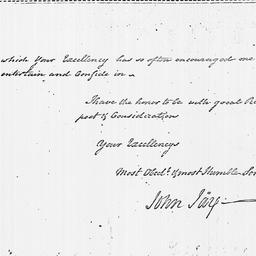 which Your Excellency has so often encouraged me
entertain and Confide in a
I have the honor to be with great Re
pect & Consideration
Your Excellencys
Most Obedt. & most Humble Ser
John Jay